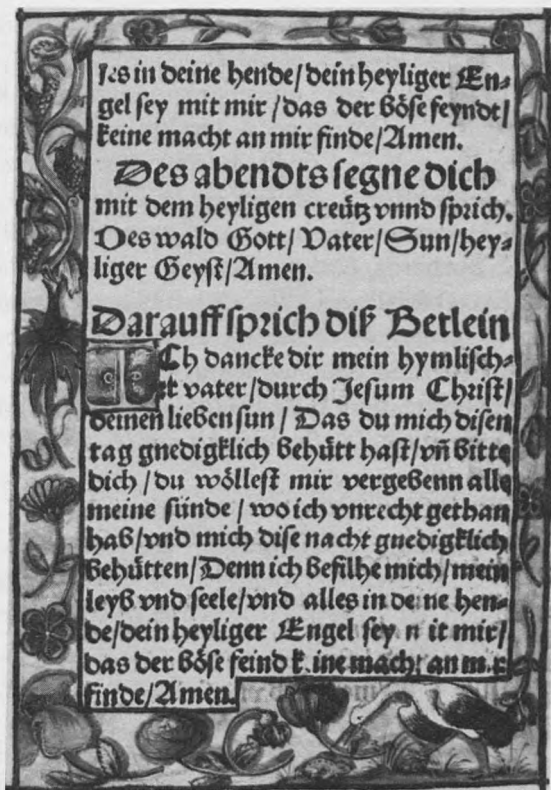 les in deine hende/dein heyliger En-
gel sey mit mir/das der böse feyndt/
keine macht an mir finde/Amen.
Des abendts segne dich
mit dem heyligen creütz vnnd sprich.
Des wald Gott/Vater/Sun/hey-
liger Geyst/Amen.
Darauff sprich diß Betlein
ICh dancke dir mein hymlisch-
er vater/durch Jesum Christ/
deinen lieben sun/Das du mich disen
tag gnedigklich behütt hast/vñ bitte
dich/du wöllest mir vergebenn alle
meine sünde/wo ich vnrecht gethan
hab/vnd mich dise nacht gnedigklich
behütten/Denn ich befilhe mich/mein
leyb vnd seele/vnd alles in deine hen-
de/dein heyliger Engel sey mit mir/
das der böse feind keine macht an mir
finde/Amen.